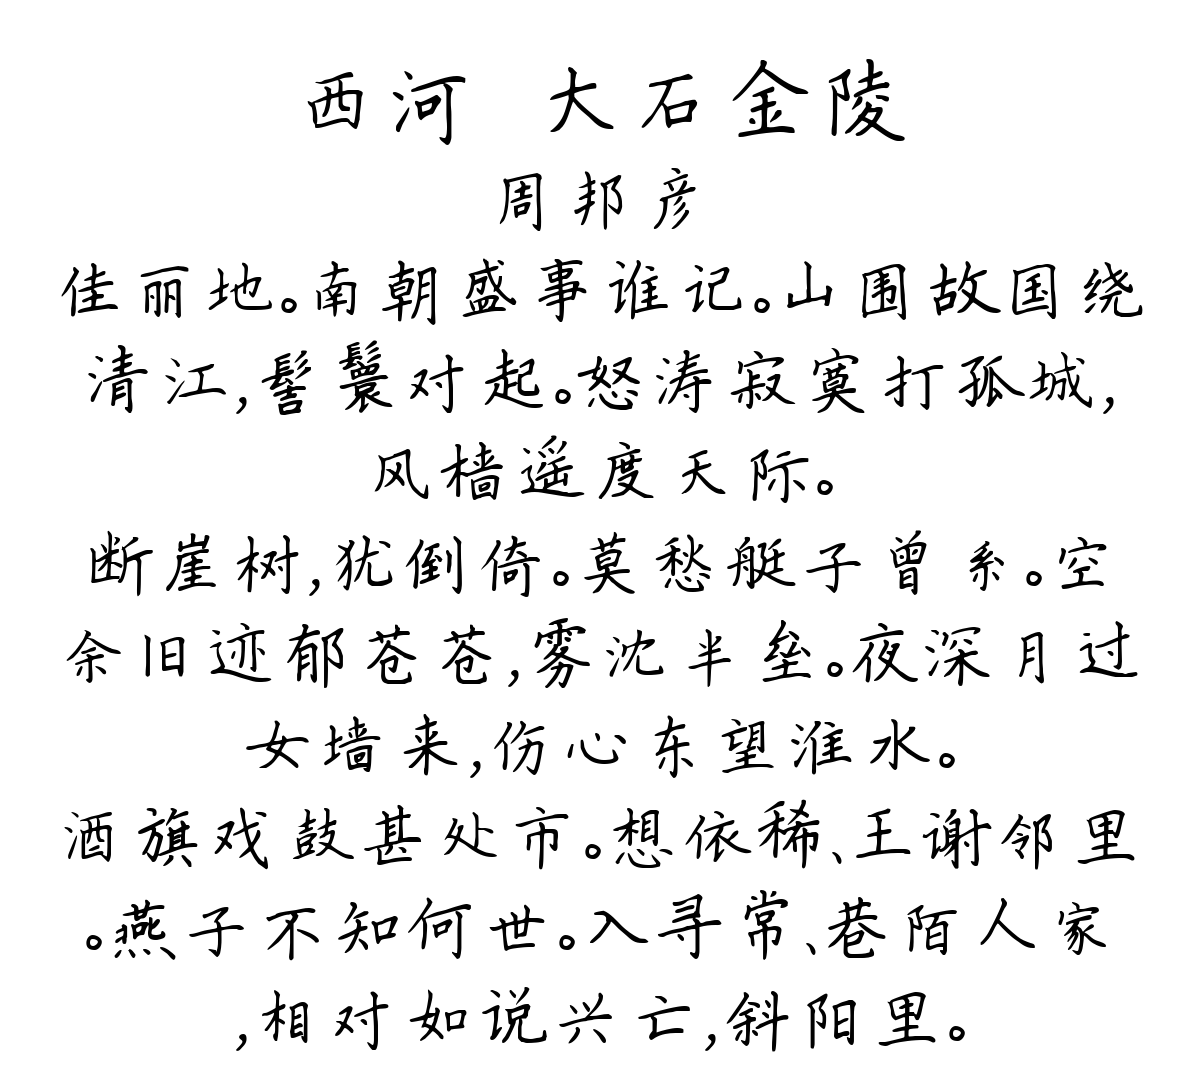 西河 大石金陵
周邦彦
佳丽地。南朝盛事谁记。山围故国绕
清江,髻鬟对起。怒涛寂寞打孤城,
风樯遥度天际。
断崖树,犹倒倚。莫愁艇子曾系。空
余旧迹郁苍苍,雾沈半垒。夜深月过
女墙来,伤心东望淮水。
酒旗戏鼓甚处市。想依稀、王谢邻里
。燕子不知何世。入寻常、巷陌人家
,相对如说兴亡,斜阳里。